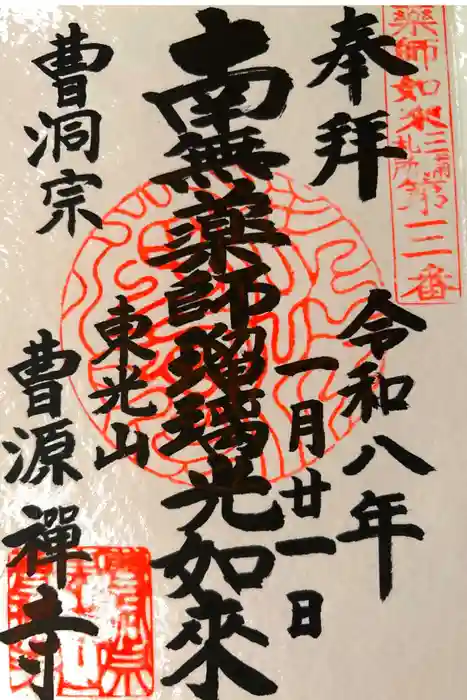 薬師如来三浦札所第三番
奉拝
令和八年
一月廿一日
南無薬師瑠璃光如來
曹洞宗
東光山
曹源禪寺